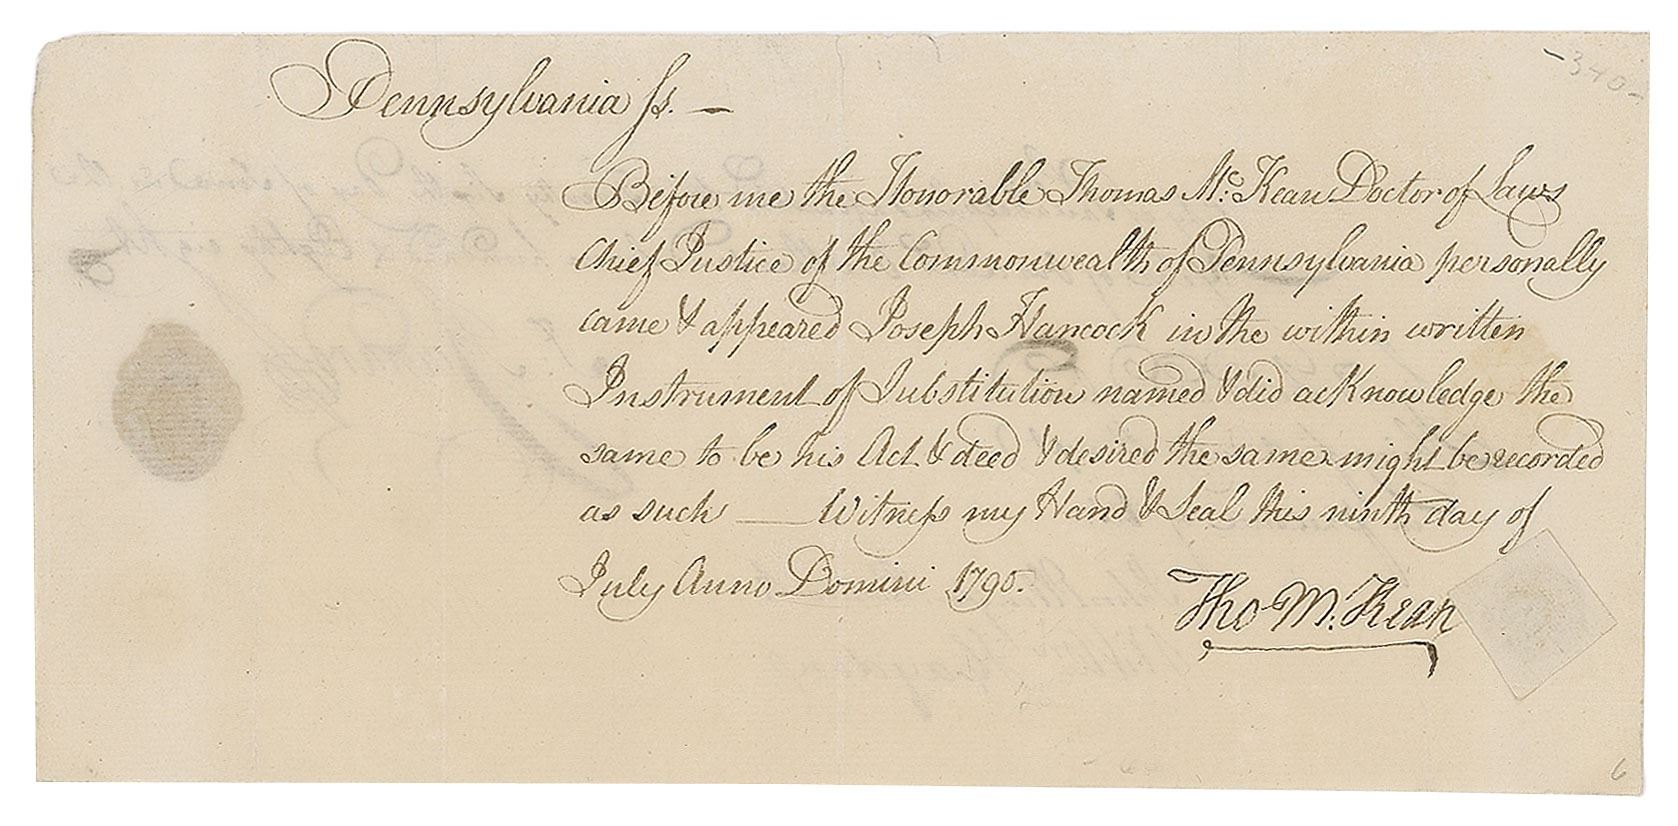 -340-
Pennsylvania ss. —
Before me the Honorable Thomas Mc. Kean Doctor of Laws
Chief Justice of the Commonwealth of Pennsylvania personally
came & appeared Joseph Hancock in the within written
Instrument of Substitution named & did acknowledge the
same to be his Act & deed & desired the same might be recorded
as such — Witness my Hand & Seal this ninth day of
July Anno Domini 1790.
Tho M:Kean
6